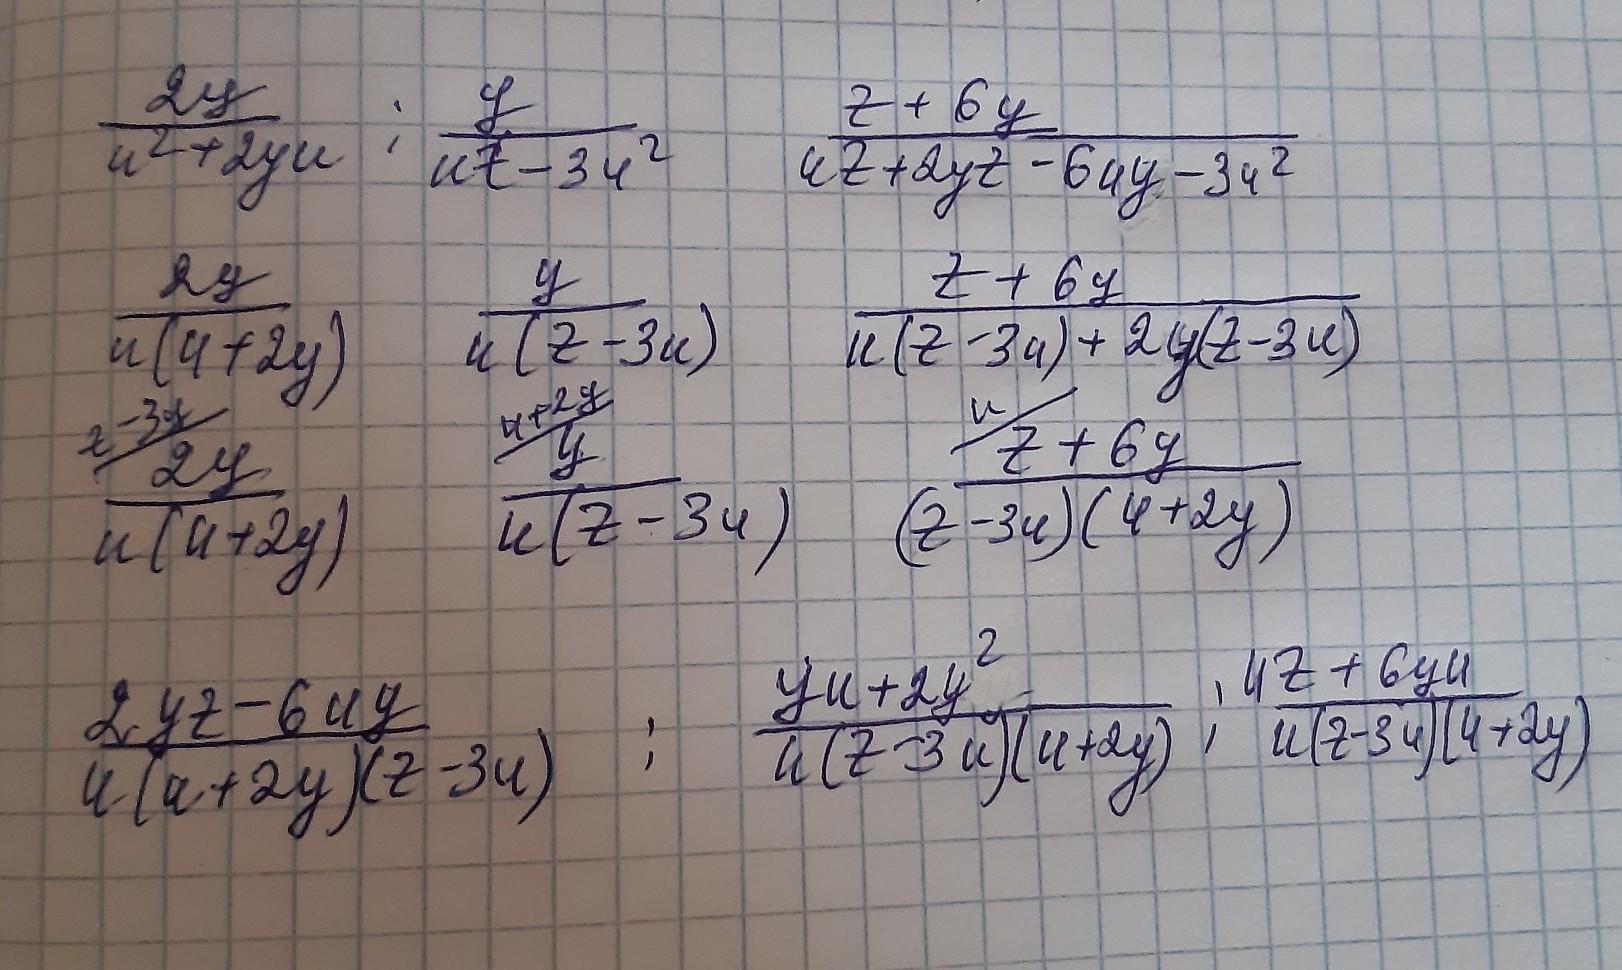 2y/(u²+2yu) ; y/(uz-3u²) (z+6y)/(uz+2yz-6uy-3u²)
2y/(u(u+2y)) y/(u(z-3u)) (z+6y)/(u(z-3u)+2y(z-3u))
z-3y/ 2y/(u(u+2y)) u+2y/ y/(u(z-3u)) u/ (z+6y)/((z-3u)(u+2y))
(2yz-6uy)/(u(u+2y)(z-3u)) ; (yu+2y²)/(u(z-3u)(u+2y)) ; (uz+6yu)/(u(z-3u)(u+2y))